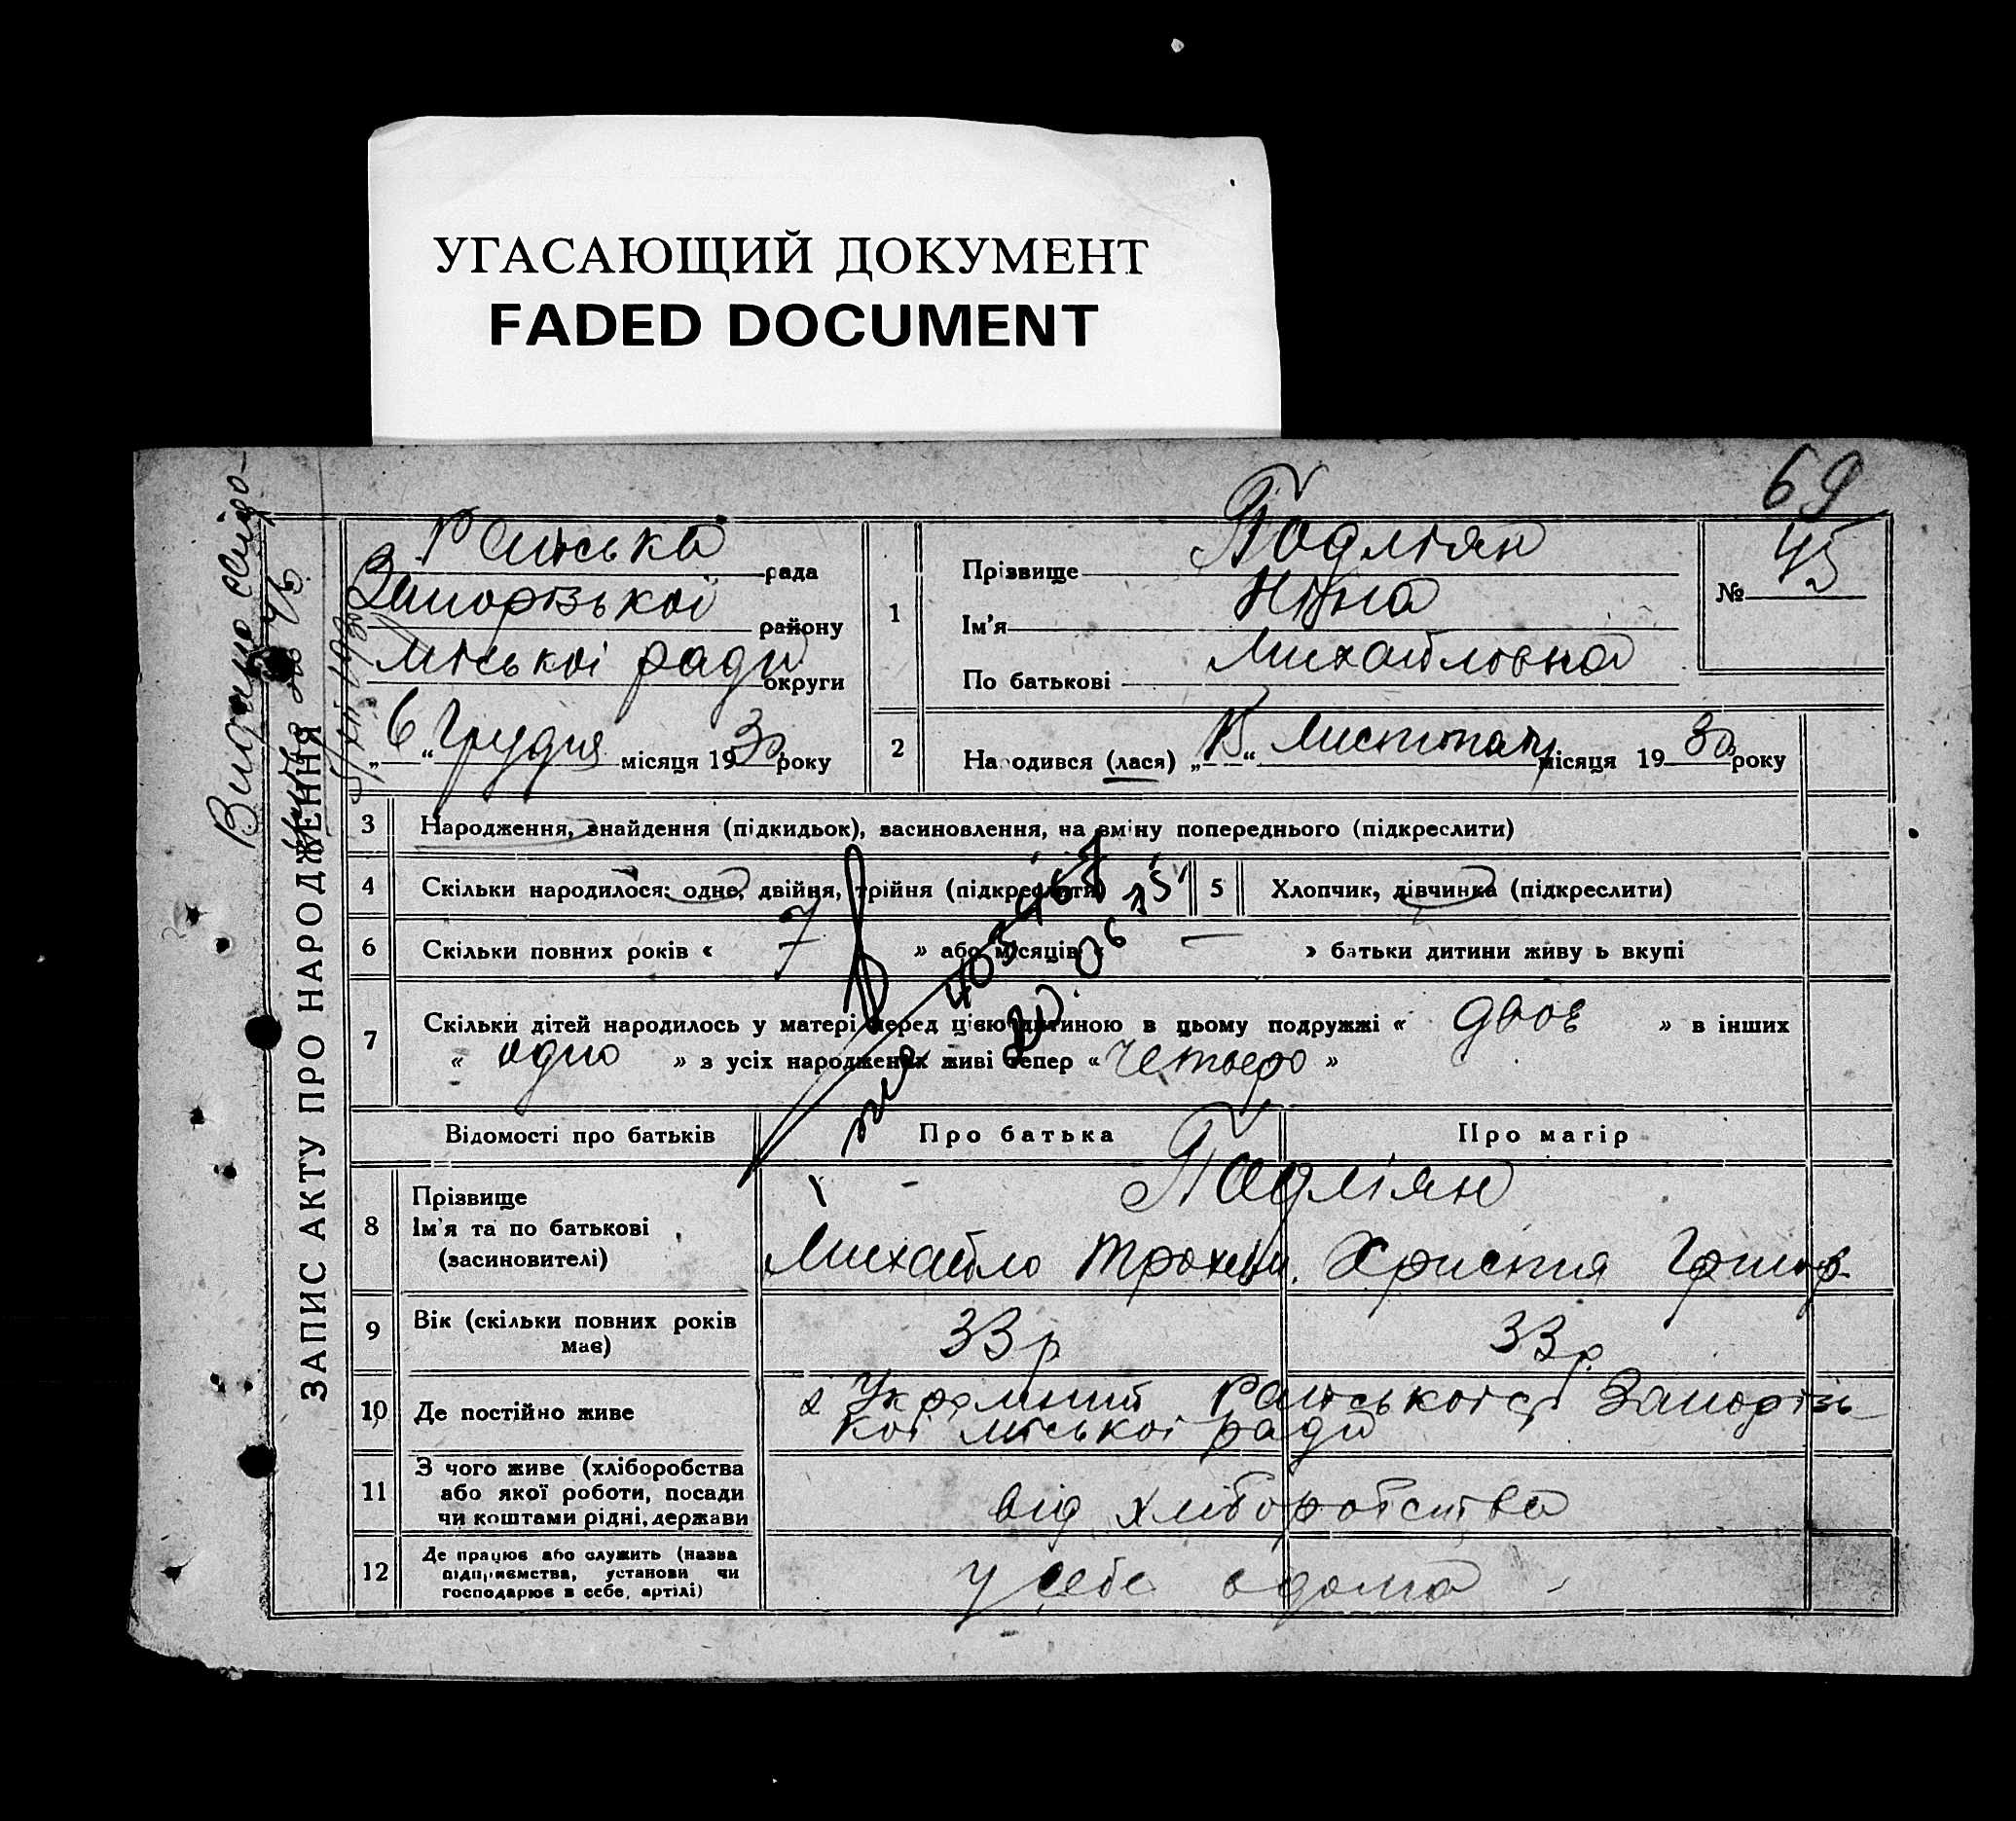 УГАСАЮЩИЙ ДОКУМЕНТ
FADED DOCUMENT
69
Видано свідо-
ЗАПИС АКТУ ПРО НАРОДЖЕННЯ
рада
Запорізької району
міської ради округи
„6“ Грудня місяця 1930 року
1
Прізвище
Ім'я Ніна
По батькові Михайловна
№ 45
2 Народився (лася) „ “ Листопаду місяця 1930 року
3 Народження, знайдення (підкидьок), засиновлення, на зміну попереднього (підкреслити)
4 Скільки народилося: одне, двійня, трійня (підкреслити) 5 Хлопчик, дівчинка (підкреслити)
6 Скільки повних років « 7 » або місяців « — » батьки дитини живу ь вкупі
7 Скільки дітей народилось у матері перед цією дитиною в цьому подружжі « двоє » в інших
« одно » з усіх народжених живі тепер « четверо »
Відомості про батьків Про батька Про матір
8 Прізвище
Ім'я та по батькові
(засиновителі)
Михайло Христия Григор.
9 Вік (скільки повних років
має)
33 р 33 р
10 Де постійно живе
Запорізь
кої міської ради
11 З чого живе (хліборобства
або якої роботи, посади
чи коштами рідні, держави
від хліборобства
12 Де працює або служить (назва
підприємства, установи чи
господарює в себе, артілі)
у себе вдома